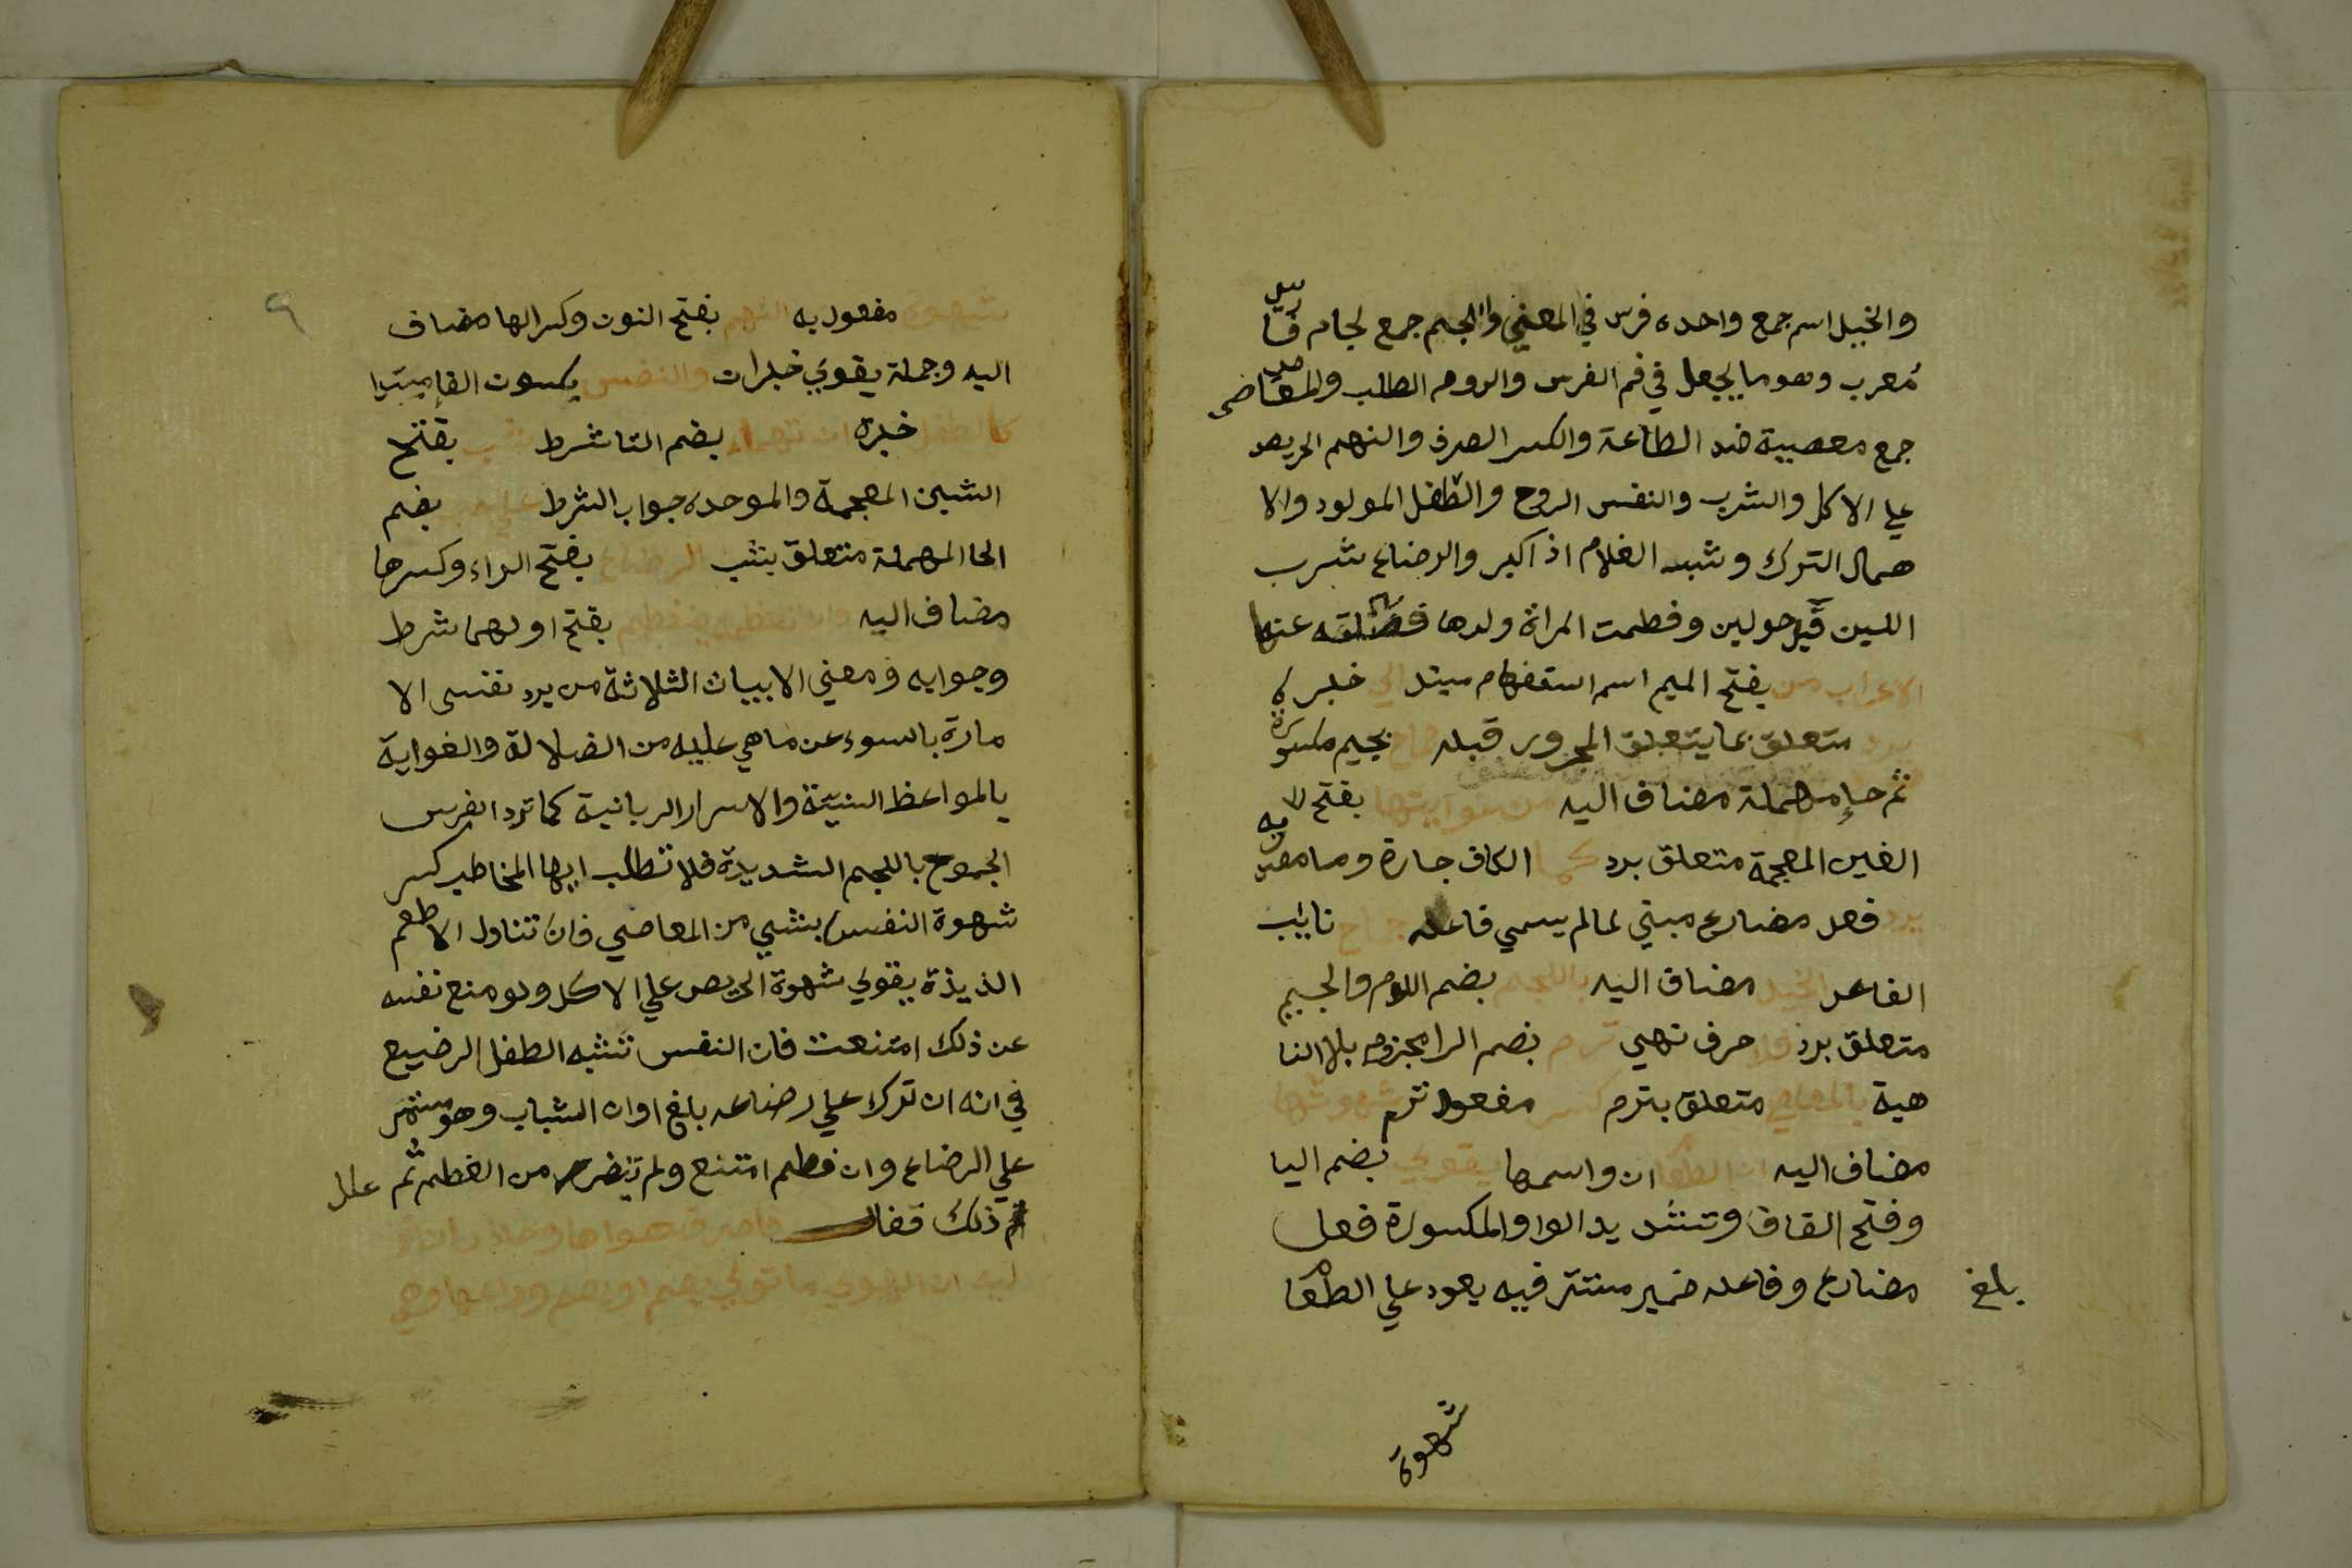 والخيل اسم جمع واحده فرس في المعني واللجم جمع لجام قيل
معرب وهو ما يجعل في فم الفرس والروم الطلب والمعاصي
جمع معصيية ضد الطاعة والكسر الصرف والنهم الحريص
علي الاكل والشرب والنفس الروح والطفل المولود والا
همال الترك وشب الغلام اذا كبر والرضاع شرب
اللبن قبل حولين وفطمت المراة ولدها عنها
الاعراب من بفتح الميم اسم استفهام مبتدا لي خبره
برد متعلق بما يتعلق المجرور قبله جماح بجيم مكسورة
ثم حاء مهملة مضاف اليه من غوايتها بفتح
الغين المعجمة متعلق برد كما الكاف جارة وما
يرد فعل مضارع مبني لما لم يسمي فاعله جماح نايب
الفاعل الخيل مضاف اليه باللجم بضم اللام والجيم
متعلق برد فلا حرف نهي ترم بضم الرا مجزوم بلا النا
هية بالمعاصي متعلق بترم كسر مفعول ترم شهوتها
مضاف اليه ان الطعام ان واسمها يقوي بضم اليا
وفتح القاف وتشديد الواو المكسورة فعل
مضارع وفاعله ضمير مستتر فيه يعود علي الطعام
بلغ
شهوة
٩
شهوة مفعول به النهم بفتح النون وكسر الها مضاف
اليه وجملة يقوي خبر ان والنفس بسكون الفا مبتدا
كالطفل خبره ان تهمله بضم التا شرط شب بفتح
الشين المعجمة والموحده جواب الشرط علي حب بضم
الحا المهملة متعلق بشب الرضاع بفتح الراء وكسرها
مضاف اليه وان تفطمه ينفطم بفتح اولهما شرط
وجوابه ومعني الابيات الثلاثة من يرد نفسي الا
مارة بالسوء عن ما هي عليه من الضلالة والغواية
بالمواعظ السنية والاسرار الربانية كما ترد الفرس
الجموح باللجم الشديدة فلا تطلب ايها المخاطب كسر
شهوة النفس بشيي من المعاصي فان تناول الاطعم
الذيذة يقوي شهوة الحريص علي الاكل ولو منع نفسه
عن ذلك امتنعت فان النفس تشبه الطفل الرضيع
في انه ان ترك علي رضاعه بلغ اوان الشباب وهو مستمر
علي الرضاع وان فطم امتنع ولم يتضرر من الفطم ثم علل
ذلك فقال فاصرف هواها وحاذر ان تو
ليه ان الهوي ما تولي يصم او يصم وراعها وهي